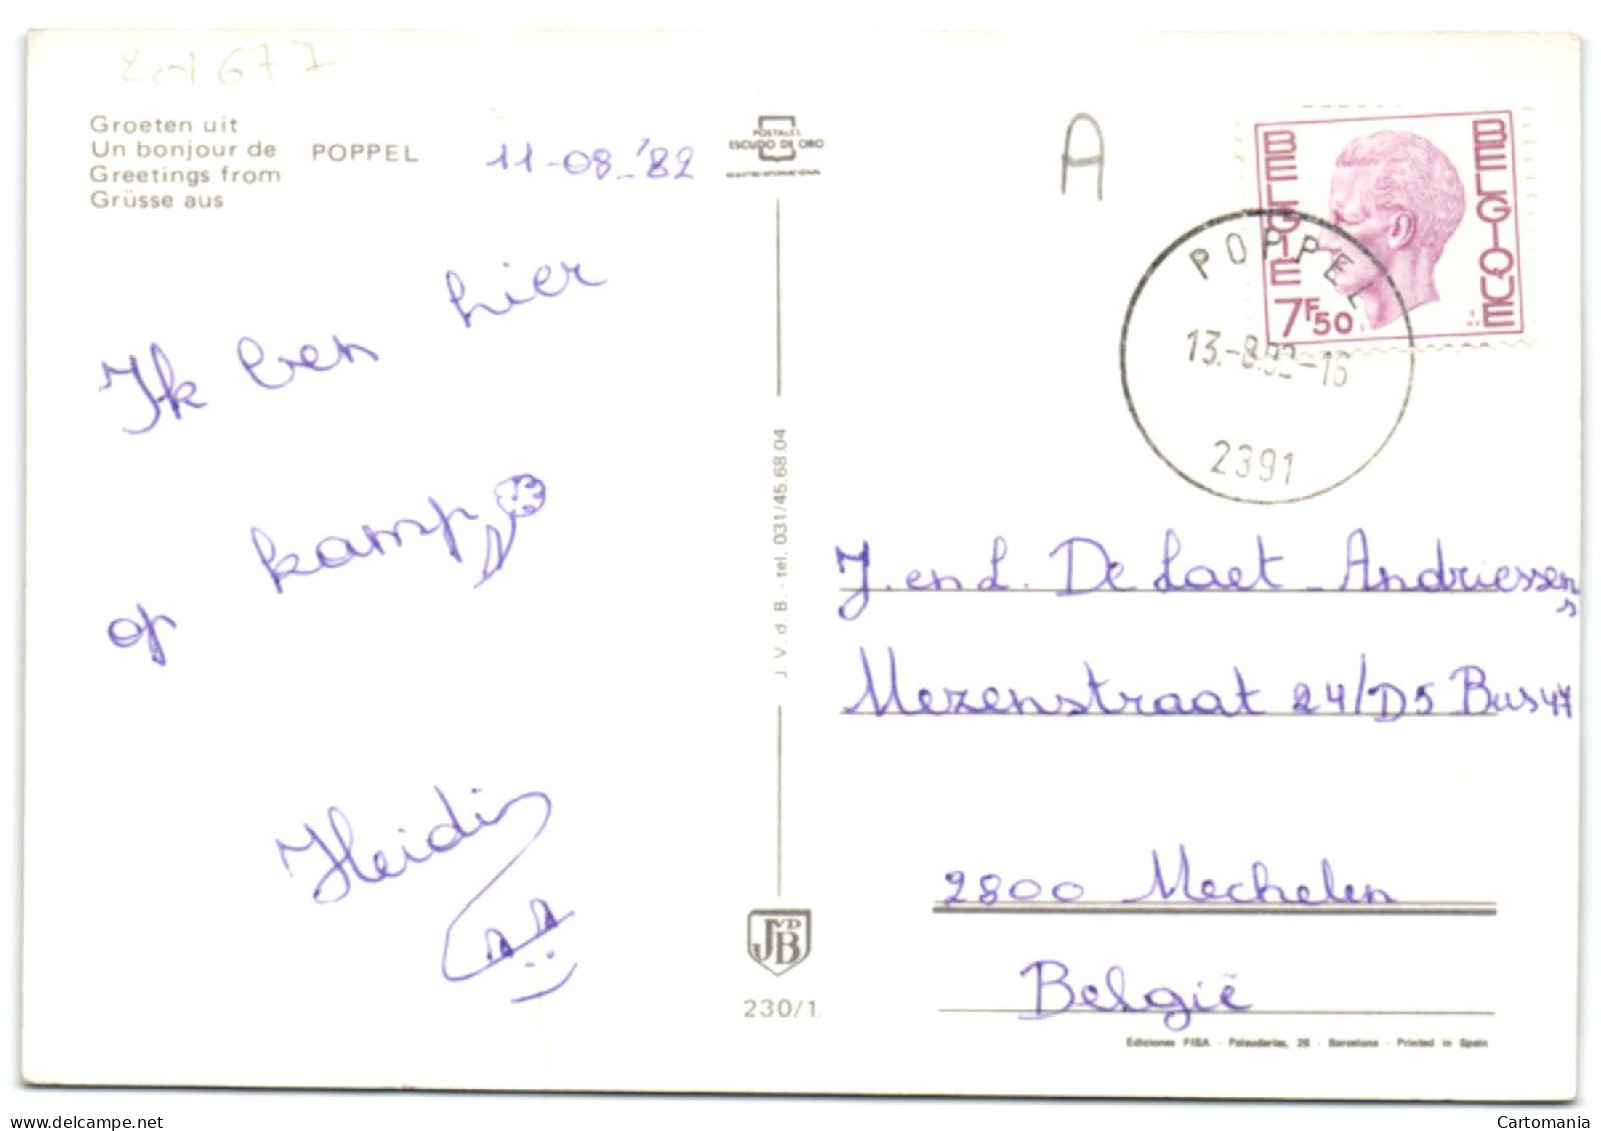 677
Groeten uit
Un bonjour de POPPEL
Greetings from
Grüsse aus
11-08-'82
Ik ben hier
op kamp
Heidi
POSTALES
ESCUDO DE ORO
REGISTRO INTERNACIONAL
J. V. d. B. · tel. 031/45.68.04
JVDB
230/1.
A
BELGIE
BELGIQUE
7F50
POPPEL
13.-8.82-16
2391
J. en L. De Laet - Andriessens
Mezenstraat 24/D5 Bus 47
2800 Mechelen
België
Ediciones FISA · Palaudarias, 26 · Barcelona · Printed in Spain
Cartomania